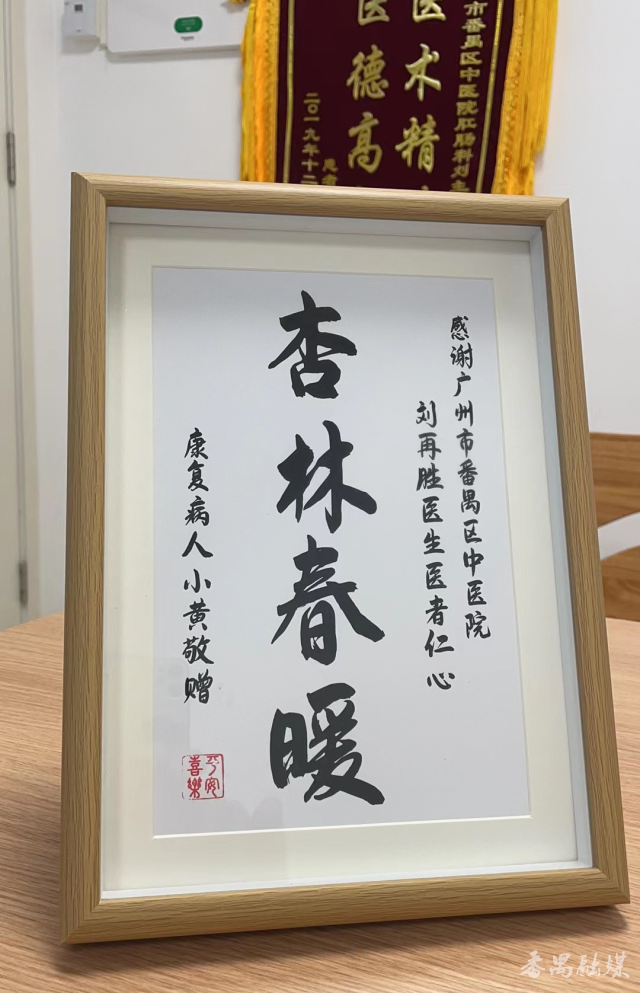 感谢广州市番禺区中医院
刘再胜医生医者仁心
杏林春暖
康复病人小黄敬赠
平安
喜樂
市番禺区中医院肛肠科刘主
医术精
医德高
二〇一九年十二
番禺融媒